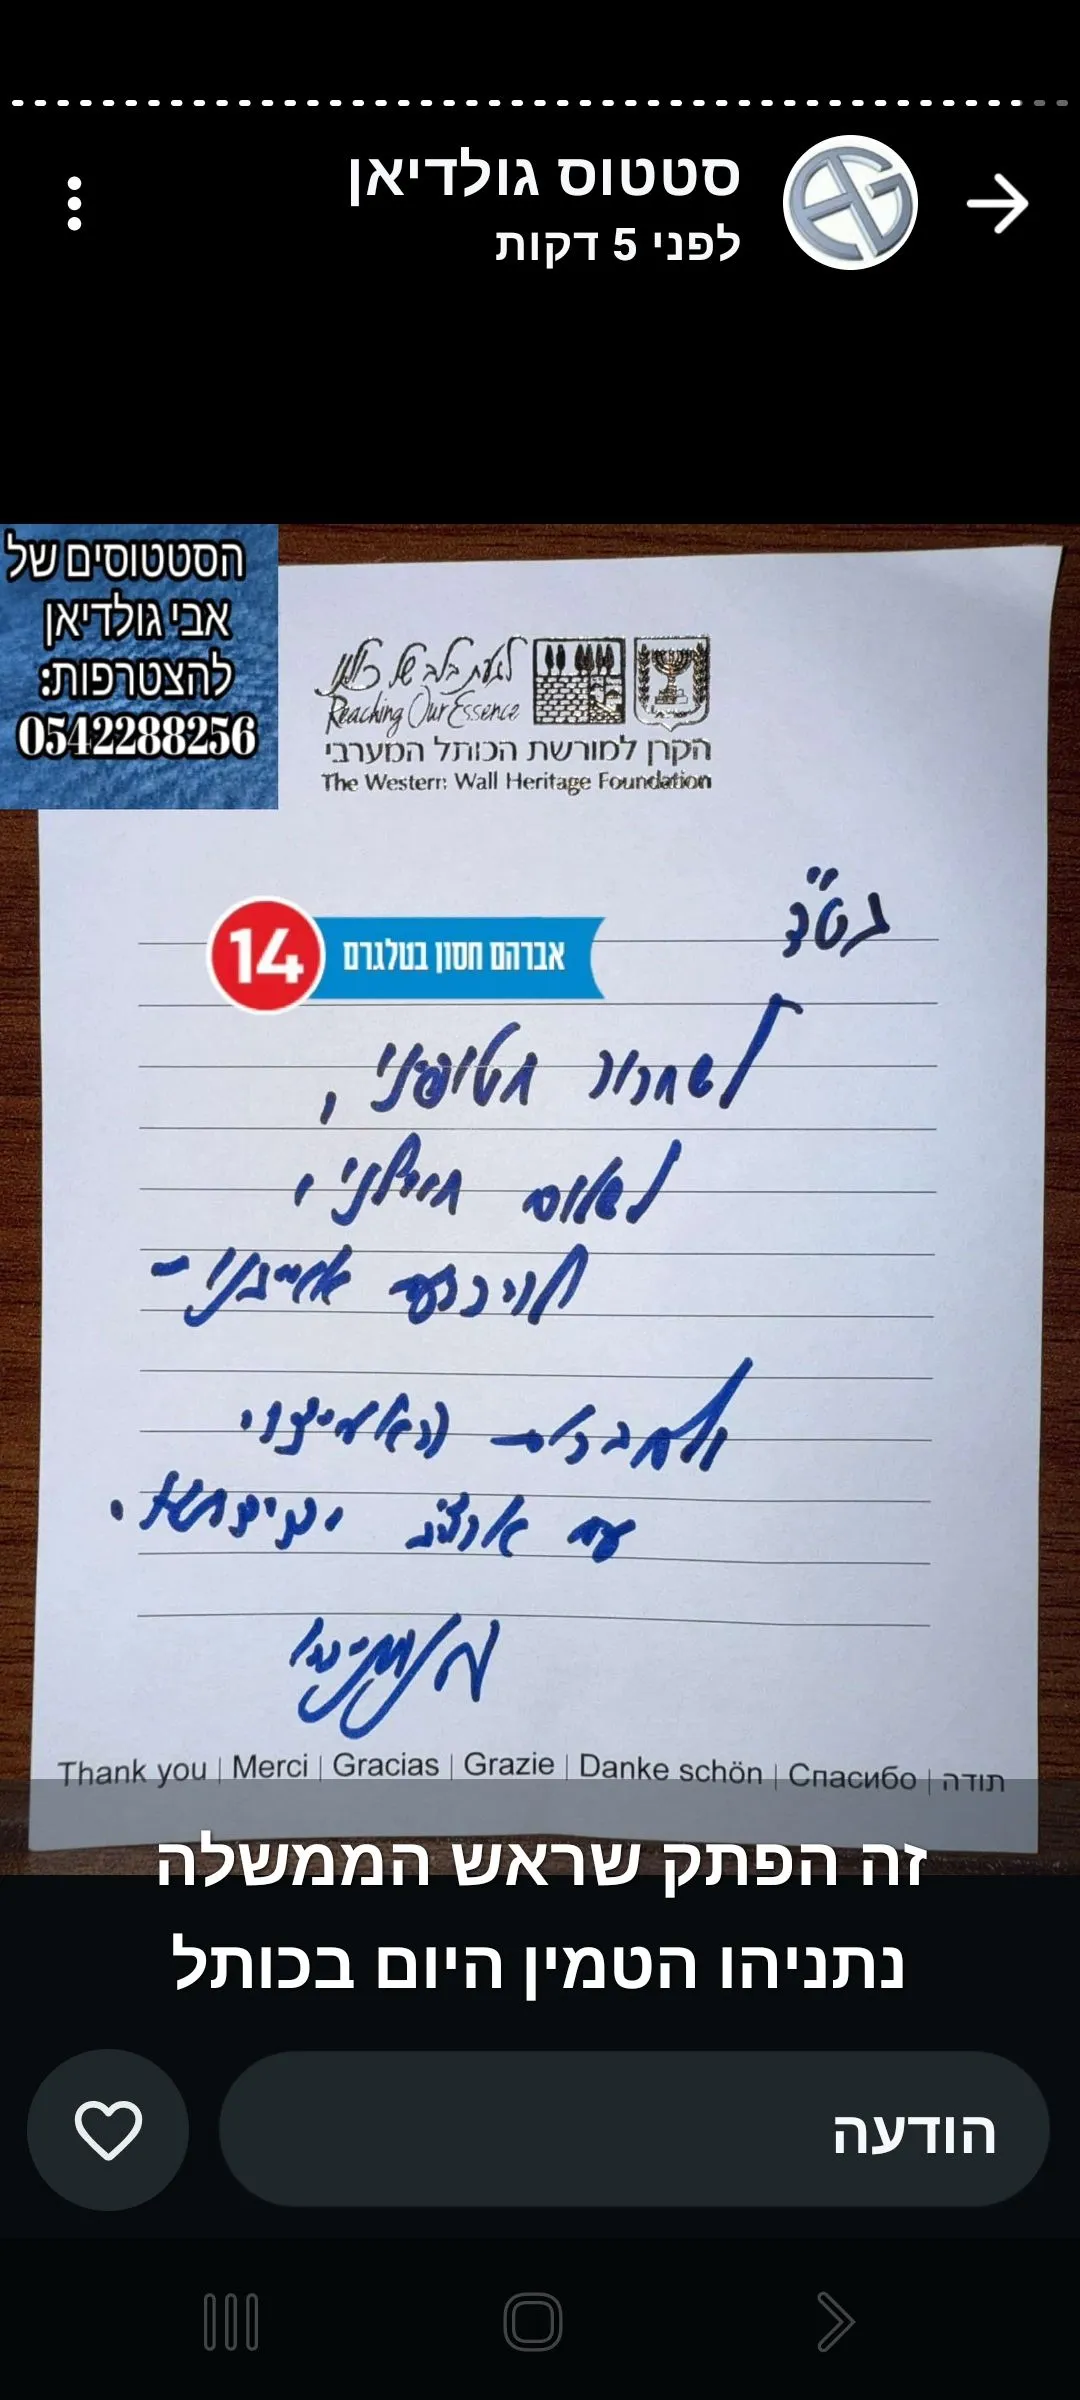 סטטוס גולדיאן
לפני 5 דקות
הסטטוסים של
אבי גולדיאן
להצטרפות:
0542288256
לגעת בלב של כולנו
Reaching Our Essence
הקרן למורשת הכותל המערבי
The Western Wall Heritage Foundation
בס"ד
14 אברהם חסון בטלגרם
לשחרור חטופינו,
לשלום חיילינו,
להכרעת אויבנו -
ולחברות האמיצה
עם ארצנו
נתניהו
Thank you | Merci | Gracias | Grazie | Danke schön | Спасибо | תודה
זה הפתק שראש הממשלה
נתניהו הטמין היום בכותל
הודעה